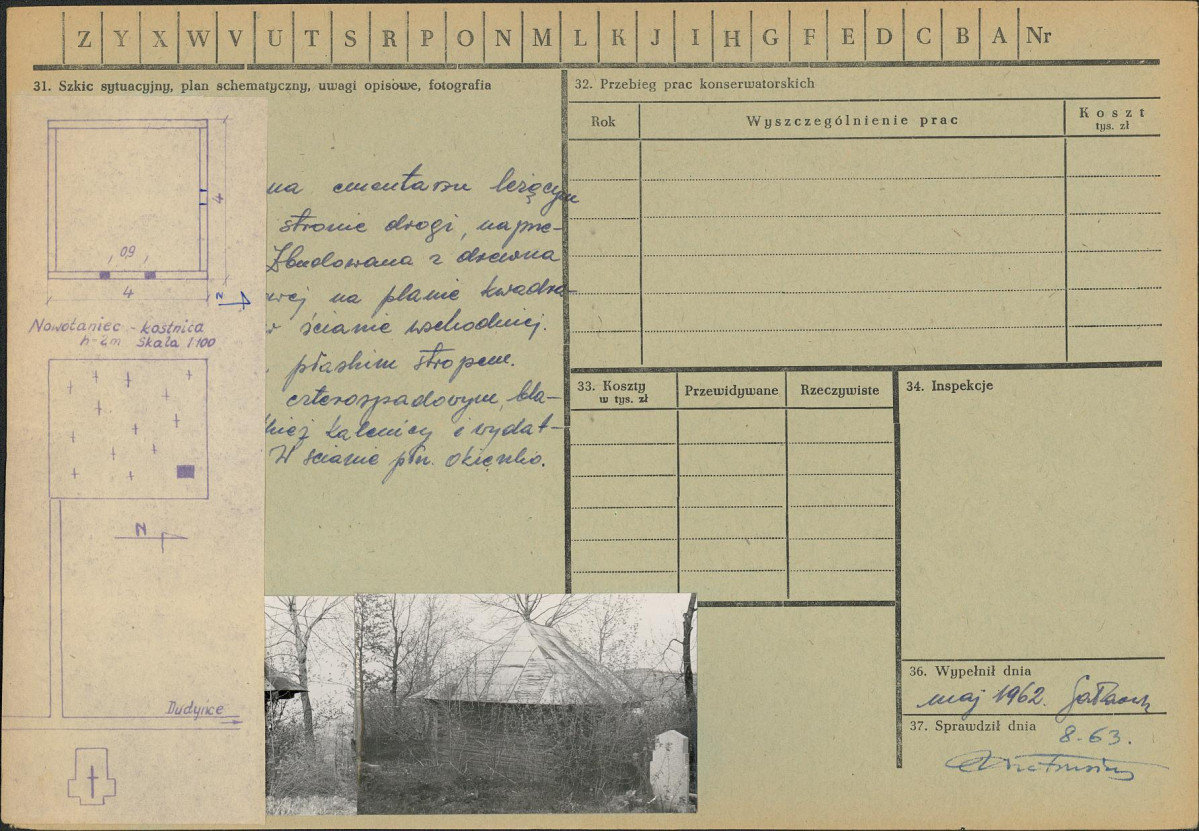 Z Y X W V U T S R P O N M L K J I H G F E D C B A Nr
31. Szkic sytuacyjny, plan schematyczny, uwagi opisowe, fotografia
4
0,9
4
N
Nowotaniec - kostnica
h-2m Skala 1:100
N
Dudyńce
na cmentarzu leżącym
stronie drogi, napne-
Zbudowana z drewna
wej na planie kwadra-
w ścianie wschodniej.
płaskim stropem.
czterospadowym, bla-
kalenicy i wydat-
W ścianie płn. okienko.
32. Przebieg prac konserwatorskich
Rok
Wyszczególnienie prac
Koszt
tys. zł
33. Koszty
w tys. zł
Przewidywane
Rzeczywiste
34. Inspekcje
36. Wypełnił dnia
maj 1962.
37. Sprawdził dnia
8-63.